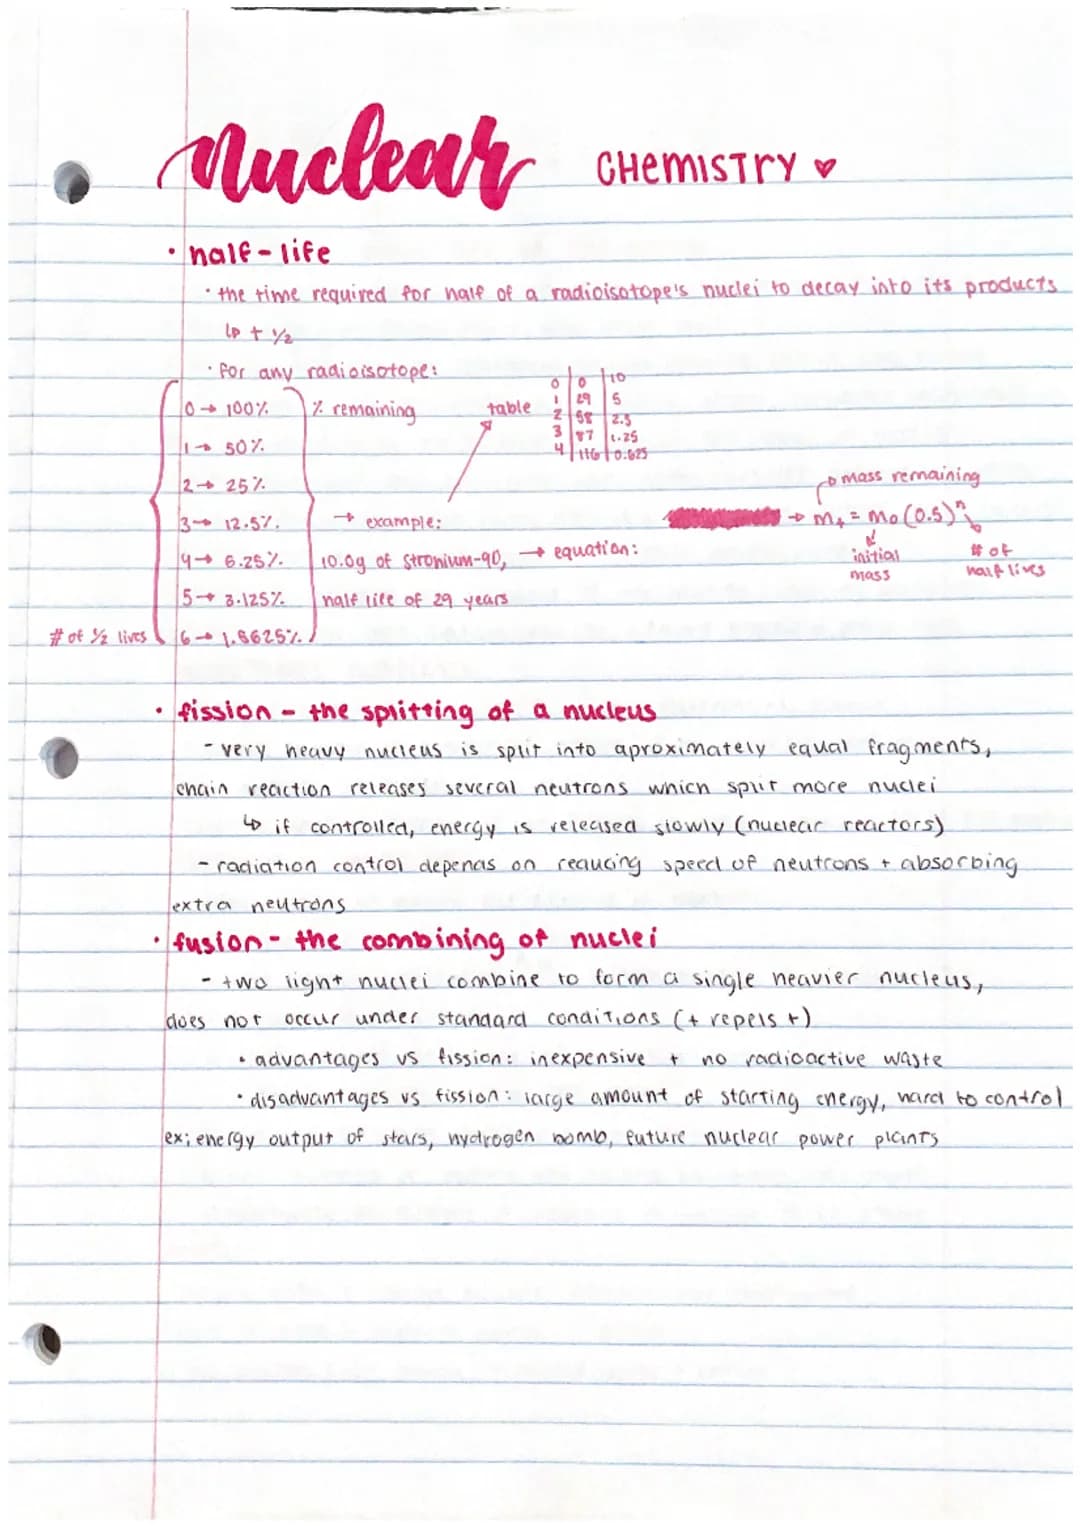 nuclear CHEMISTRY ♥
• half-life
• the time required for half of a radioisotope's nuclei to decay into its products
↳ t ½
• for any radioisotope:
0 → 100% % remaining
1 → 50%
2 → 25%
3 → 12.5%
4 → 6.25%
5 → 3.125%
# of ½ lives 6 → 1.5625%
table
0 0 10
1 29 5
2 58 2.5
3 87 1.25
4 116 0.625
→ example:
10.0g of Stronium-90,
half life of 29 years
→ equation:
→ mass remaining
→ m₊ = m₀(0.5)ⁿ
initial
mass
# of
half lives
• fission - the splitting of a nucleus
- very heavy nucleus is split into aproximately equal fragments,
chain reaction releases several neutrons which split more nuclei
↳ if controlled, energy is released slowly (nuclear reactors)
- radiation control depends on reducing speed of neutrons + absorbing
extra neutrons
• fusion - the combining of nuclei
- two light nuclei combine to form a single heavier nucleus,
does not occur under standard conditions (+ repels +)
• advantages vs fission: inexpensive + no radioactive waste
• disadvantages vs fission: large amount of starting energy, hard to control
ex; energy output of stars, hydrogen bomb, future nuclear power plants